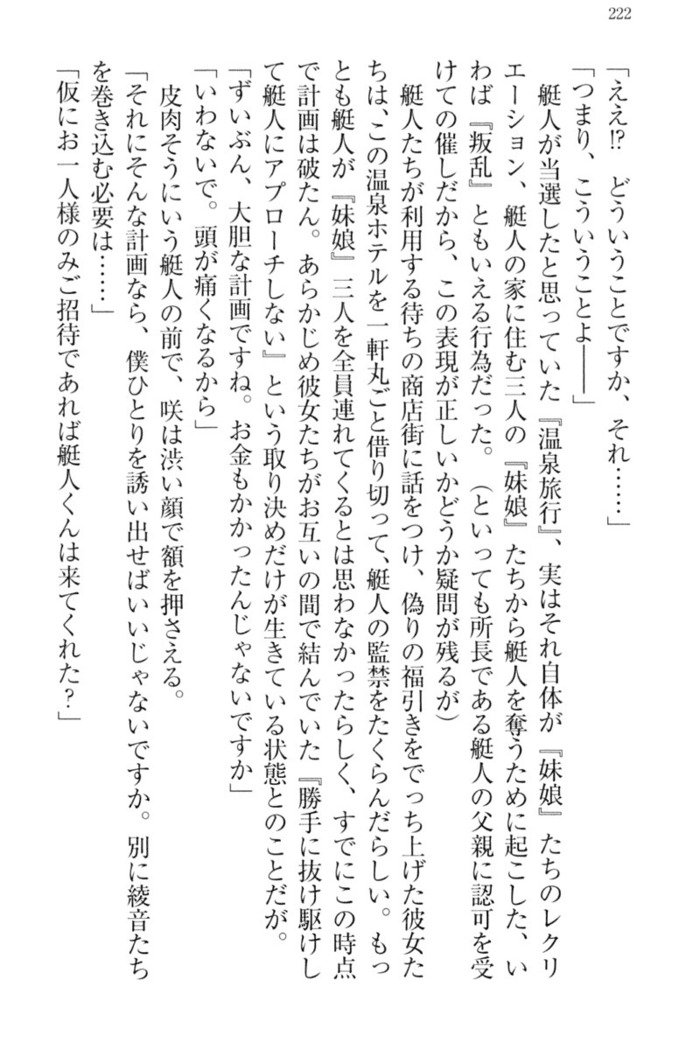 222
「ええ!?　どういうことですか、それ……」
「つまり、こういうことよ――」
　艇人が当選したと思っていた『温泉旅行』、実はそれ自体が『妹娘』たちのレクリ
エーション、艇人の家に住む三人の『妹娘』たちから艇人を奪うために起こした、い
わば『叛乱』ともいえる行為だった。（といっても所長である艇人の父親に認可を受
けての催しだから、この表現が正しいかどうか疑問が残るが）
　艇人たちが利用する待ちの商店街に話をつけ、偽りの福引きをでっち上げた彼女た
ちは、この温泉ホテルを一軒丸ごと借り切って、艇人の監禁をたくらんだらしい。もっ
とも艇人が『妹娘』三人を全員連れてくるとは思わなかったらしく、すでにこの時点
で計画は破たん。あらかじめ彼女たちがお互いの間で結んでいた『勝手に抜け駆けし
て艇人にアプローチしない』という取り決めだけが生きている状態とのことだが。
「ずいぶん、大胆な計画ですね。お金もかかったんじゃないですか」
「いわないで。頭が痛くなるから」
　皮肉そうにいう艇人の前で、咲は渋い顔で額を押さえる。
「それにそんな計画なら、僕ひとりを誘い出せばいいじゃないですか。別に綾音たち
を巻き込む必要は……」
「仮にお一人様のみご招待であれば艇人くんは来てくれた？」